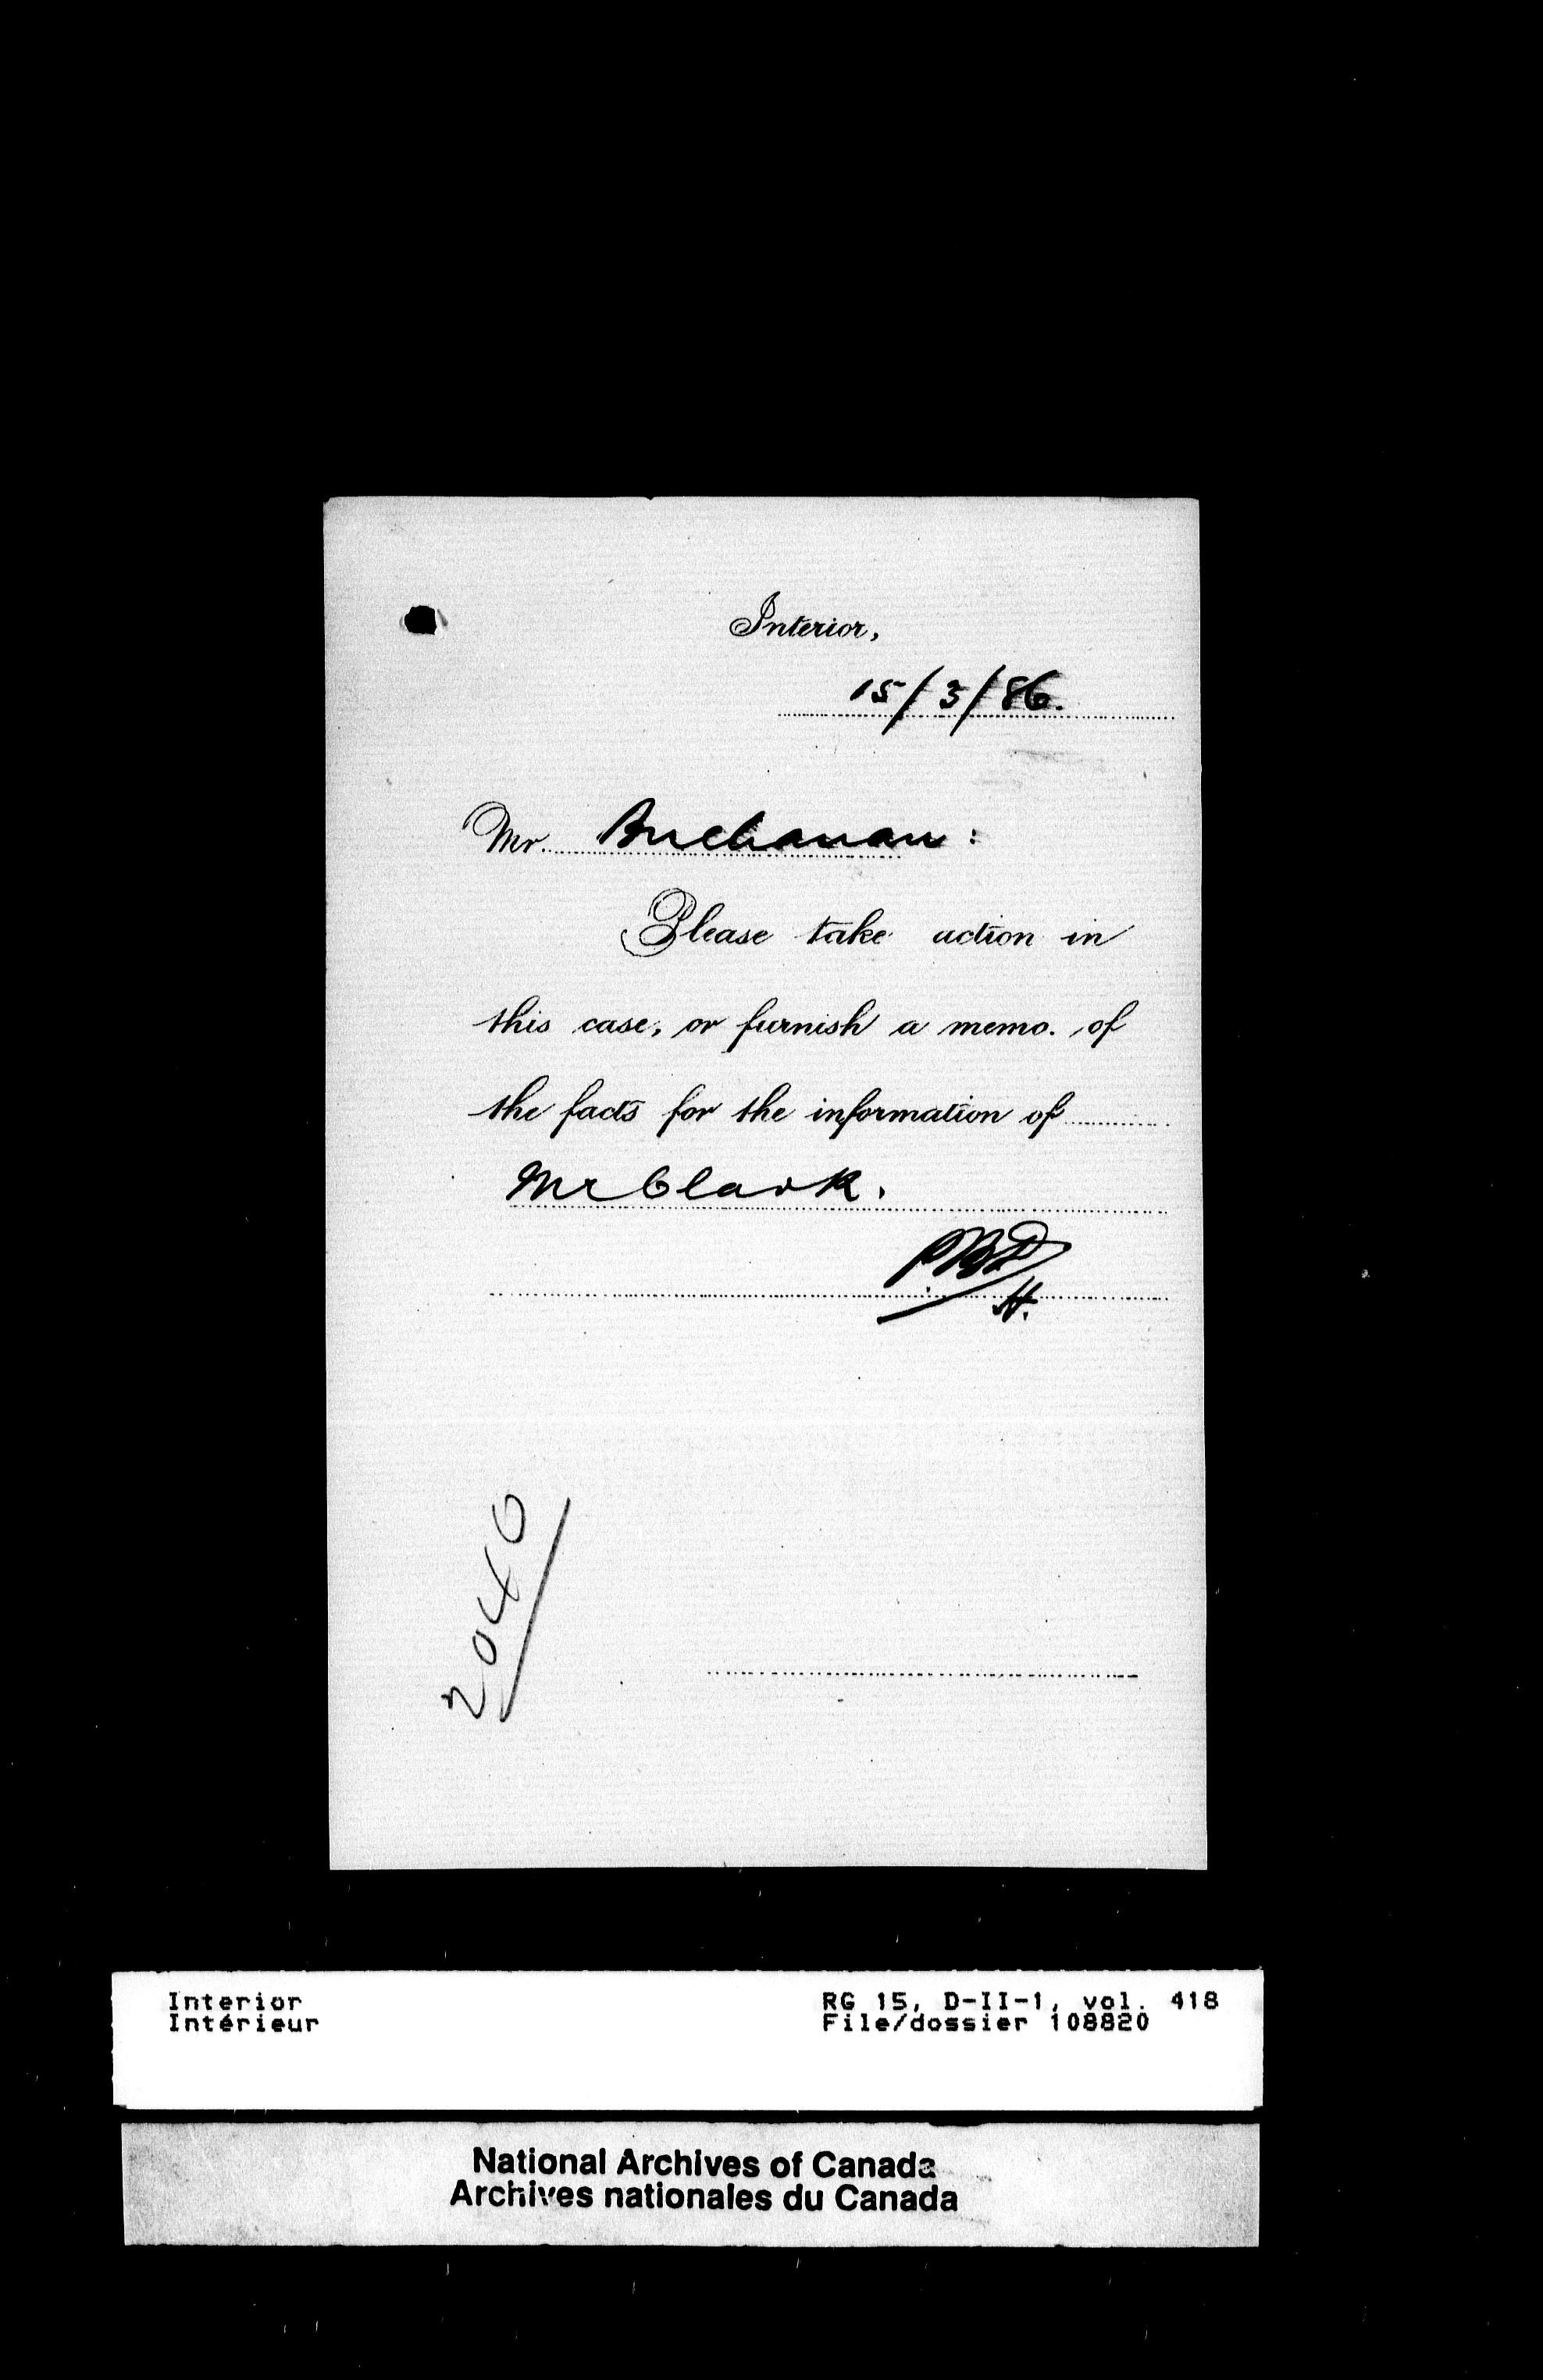 Interior,
15/3/86.
Mr. Buchanan:
Please take action in
this case, or furnish a memo. of
the facts for the information of
Mr Clark.
H.
2040
Interior
Intérieur
RG 15, D-II-1, vol. 418
File/dossier 108820
National Archives of Canada
Archives nationales du Canada